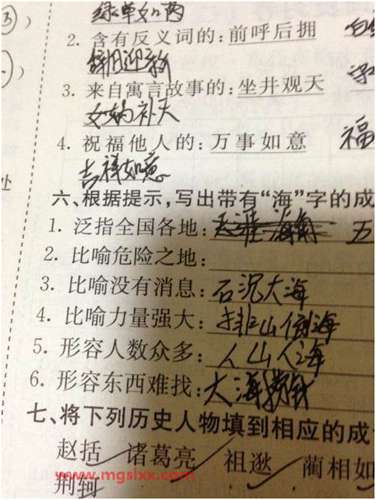 2. 含有反义词的：前呼后拥
辞旧迎新
3. 来自寓言故事的：坐井观天
女娲补天
4. 祝福他人的：万事如意 福
吉祥如意
六、根据提示，写出带有“海”字的成
1. 泛指全国各地： 五
2. 比喻危险之地：
3. 比喻没有消息：石沉大海
4. 比喻力量强大：排山倒海
5. 形容人数众多：人山人海
6. 形容东西难找：大海捞针
七、将下列历史人物填到相应的成
赵括 诸葛亮 祖逖 蔺相如
荆轲
www.mgslxx.com